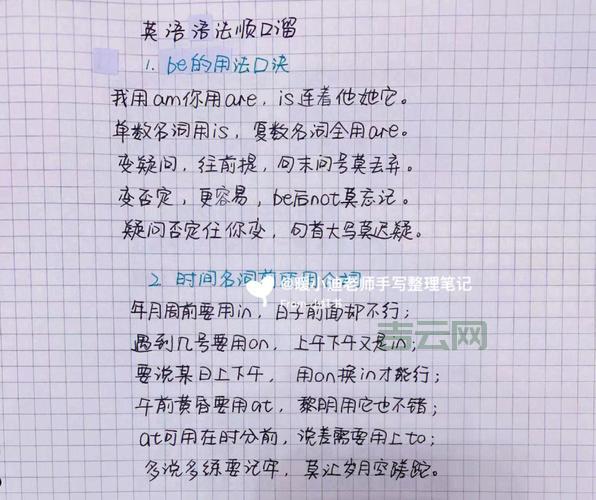 英语语法顺口溜
1. be的用法口诀
我用am你用are，is连着他她它。
单数名词用is，复数名词全用are。
变疑问，往前提，句末问号莫丢弃。
变否定，更容易，be后not莫忘记。
疑问否定任你变，句首大写莫迟疑。
2. 时间名词前所用介词
@暖小迪老师手写整理笔记
From
年月周前要用in，日子前面却不行；
吉云网
遇到几号要用on，上午下午又是in；
要说某日上下午，用on换in才能行；
午前黄昏要用at，黎明用它也不错；
at可用在时分前，说差需要用上to；
多说多练要记牢，莫让岁月空蹉跎。